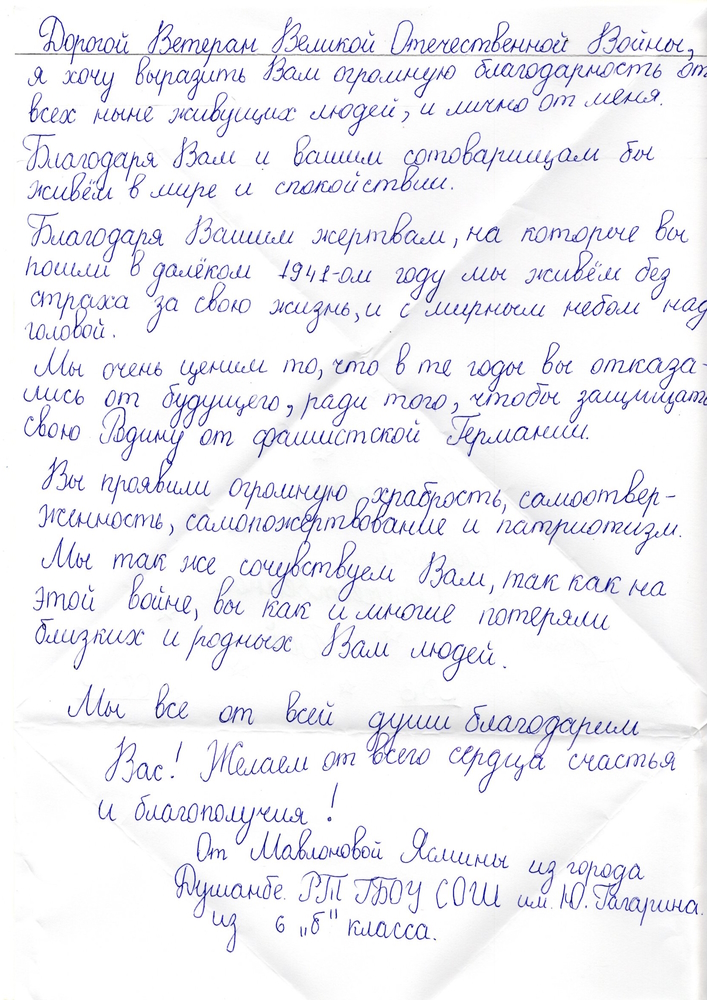 Дорогой Ветеран Великой Отечественной Войны,
я хочу выразить Вам огромную благодарность от
всех ныне живущих людей, и лично от меня.
Благодаря Вам и вашим сотоварищам бы
живём в мире и спокойствии.
Благодаря Вашим жертвам, на которые вы
пошли в далёком 1941-ом году мы живём без
страха за свою жизнь, и с мирным небом над
головой.
Мы очень ценим то, что в те годы вы отказа-
лись от будущего, ради того, чтобы защищать
свою Рдину от фашистской Германии.
Вы проявили огромную храбрость, самоотвер-
женность, самопожертвование и патриотизм.
Мы так же сочувствуем Вам, так как на
этой войне, вы как и многие потеряли
близких и родных Вам людей.
Мы все от всей души благодарим
Вас! Желаем от всего сердца счастья
и благополучия!
От Мавлоновой Ясмины из города
Душанбе. РТ ГБОУ СОШ им. Ю. Гагарина.
из 6 „б" класса.